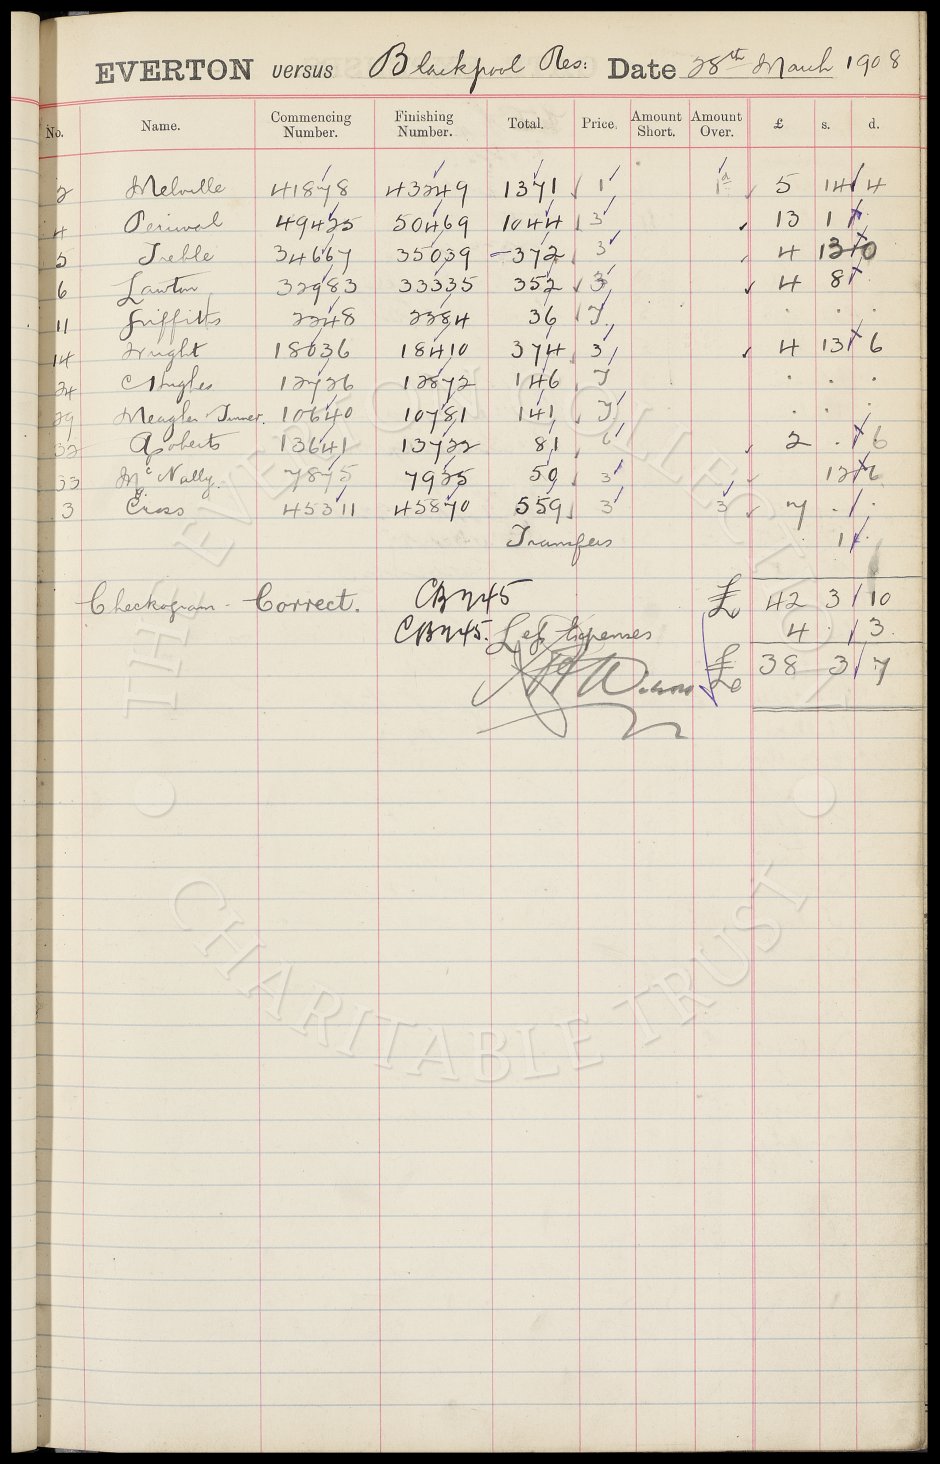 EVERTON versus Blackpool Res: Date 28th March 1908
No. Name. Commencing Number. Finishing Number. Total. Price. Amount Short. Amount Over. £ s. d.
2 Melville 41878 43249 1371 1 1d 5 14 4
4 Perceval 49425 50469 1044 3 13 1
5 Treble 34667 35039 372 3 4 13 0
6 Lawton 32983 33335 352 3 4 8
11 Griffiths 2248 2284 36 T
14 Wright 18036 18410 374 3 4 13 6
24 Hughes 12726 12872 146 T
29 Meagher Turner. 10640 10781 141 T
32 Roberts 13641 13722 81 6 2 . 6
33 McNally. 7875 7925 50 3 12 6
3 Cross 45311 45870 559 3 3 7 . .
Transfers . 1 .
Checkogram - Correct. CB 745 £ 42 3 10
CB 745. Less Expenses 4 . 3
£ 38 3 7
THE EVERTON COLLECTION
CHARITABLE TRUST